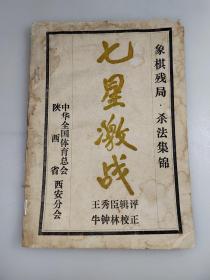 象棋残局·杀法集锦
七星激战
中华全国体育总会
陕西省西安分会
王秀臣辑评
牛钟林校正